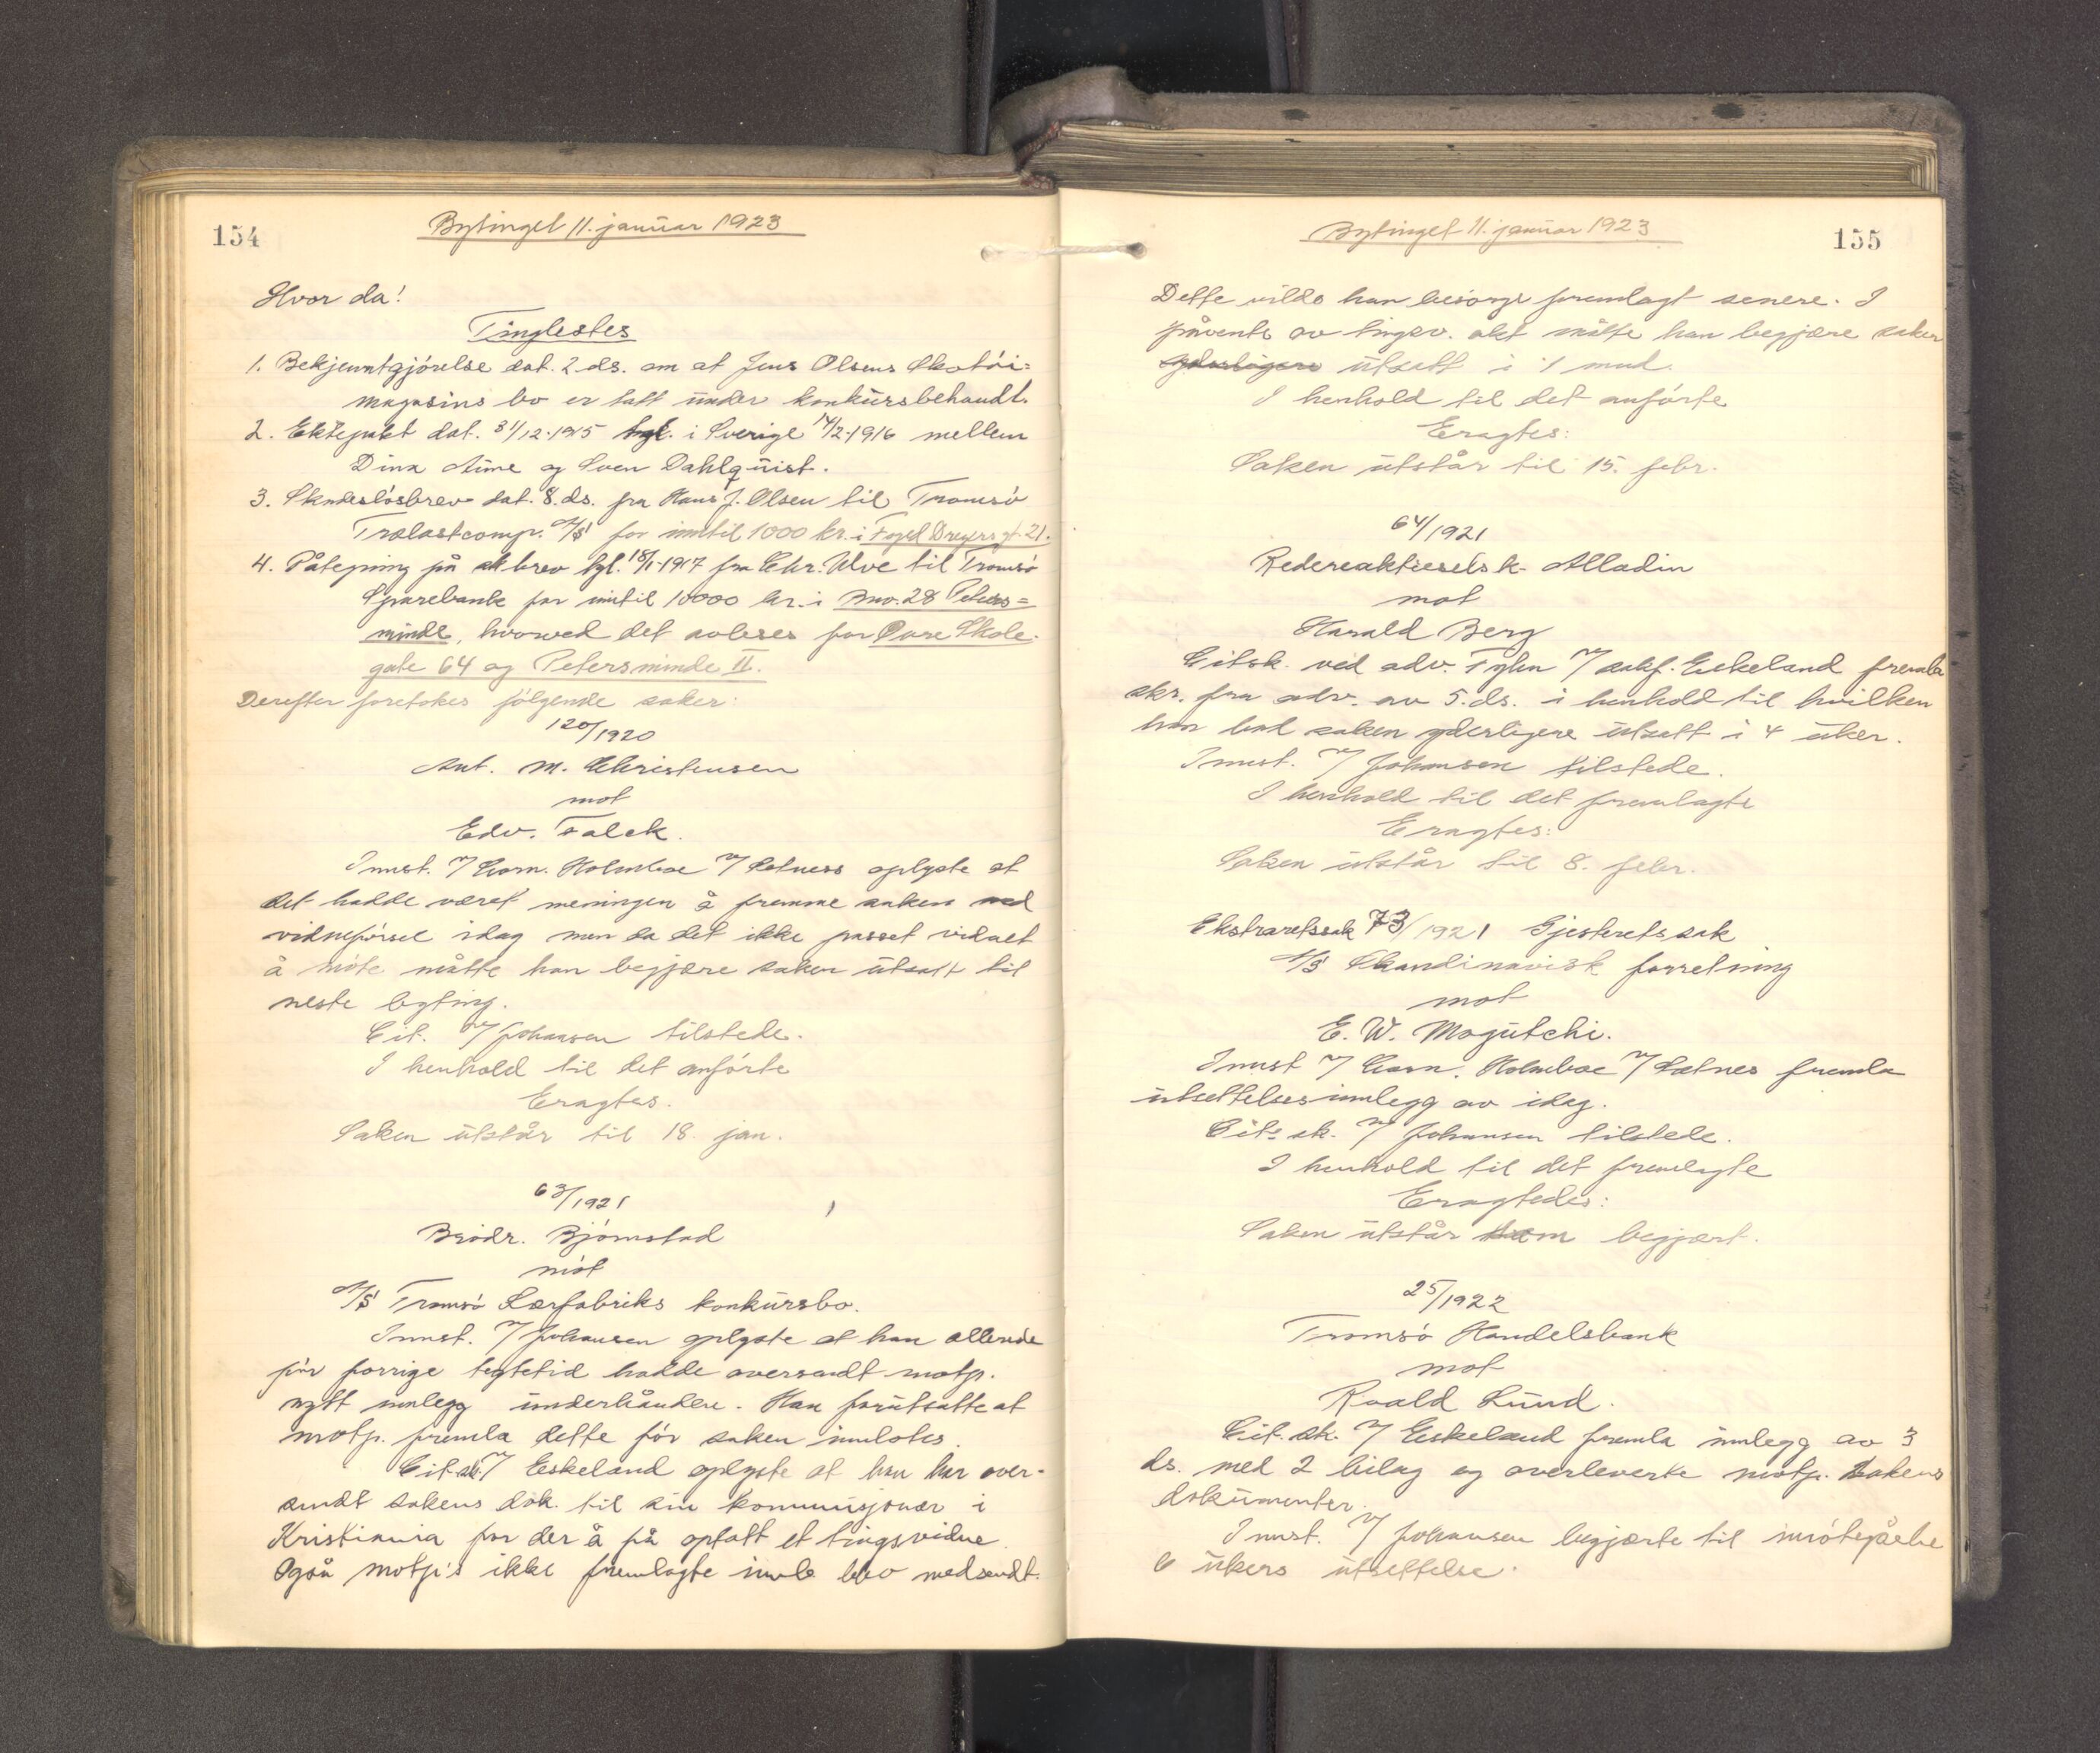 154
Bytinget 11. januar 1923
Hvor da!
Tinglestes
1. Bekjenntgjörelse dat. 2. ds. om at Jens Olsens Skotöi=
magasins bo er tatt under konkursbehandl.
2. Ektepakt dat. 31/12-1915 tgl. i Sverige 14/2-1916 mellem
Dina Aune og Sven Dahlquist.
3. Skadeslösbrev dat. 8. ds. fra Hans J. Olsen til Tromsö
Trælastcomp. A/S for inntil 1000 kr. i Foged Dreyers gt. 21.
4. Påtegning på brev tgl. 18/1-1917 fra Chr. Ulve til Tromsö
Sparebank for inntil 10000 kr. i Bno. 28 Peters=
minde, hvorved det avleses for Övre Skole-
gate 64 og Petersminde II.
Derefter foretokes fölgende saker:
120/1920
Ant. M. Christensen
mot
Edv. Falck.
Innst. v/ Corn. Holmboe v/ Lotness oplyste at
det hadde været meningen å fremme saken med
vidneförsel idag men da det ikke passet vidnet
å möte måtte han begjære saken utsatt til
neste byting.
Cit. v/ Johansen tilstede.
I henhold til det anförte
Eragtes.
Saken utstår til 18. jan.
63/1921
Brödr. Björnstad
mot
A/S Tromsö Lærfabriks konkursbo.
Innst. v/ Johansen oplyste at han allerede
för forrige tegtetid hadde oversendt motp.
nytt innlegg underhånden. Han forutsatte at
motp. fremla dette för saken innlotes.
Cit. sk. v/ Eskeland oplyste at han har over-
sendt sakens dok. til sin kommisjonær i
Kristiania for der å få optatt et tingsvidne.
Også motp's ikke fremlagte innl. blev medsendt.
155
Bytinget 11. januar 1923
Dette vilde han besörge fremlagt senere. I
påvente av tingsv. akt måtte han begjære saken
utsatt i 1 mnd.
I henhold til det anförte
Eragtes:
Saken utstår til 15. febr.
64/1921
Redereaktieselsk. Alladin
mot
Harald Berg
Citsk. ved adv. v/ sakf. Eskeland fremla
skr. fra adv. av 5. ds. i henhold til hvilken
han bad saken yderligere utsatt i 4 uker.
Innst. v/ Johansen tilstede.
I henhold til det fremlagte
Eragtes:
Saken utstår til 8. febr.
Ekstraretssak 73/1921 Gjesteretssak
A/S Skandinavisk forretning
mot
E. W. Mogutchi.
Innst v/ Corn. Holmboe v/ Lotnes fremla
utsettelsesinnlegg av idag.
Cit. sk. v/ Johansen tilstede.
I henhold til det fremlagte
Eragtedes:
Saken utstår som begjært.
25/1922
Tromsö Handelsbank
mot
Roald Lund.
Cit. sk. v/ Eskeland fremla innlegg av 3
ds. med 2 bilag og overleverte motp. sakens
dokumenter.
Innst. v/ Johansen begjærte til imötegåelse
6 ukers utsettelse.